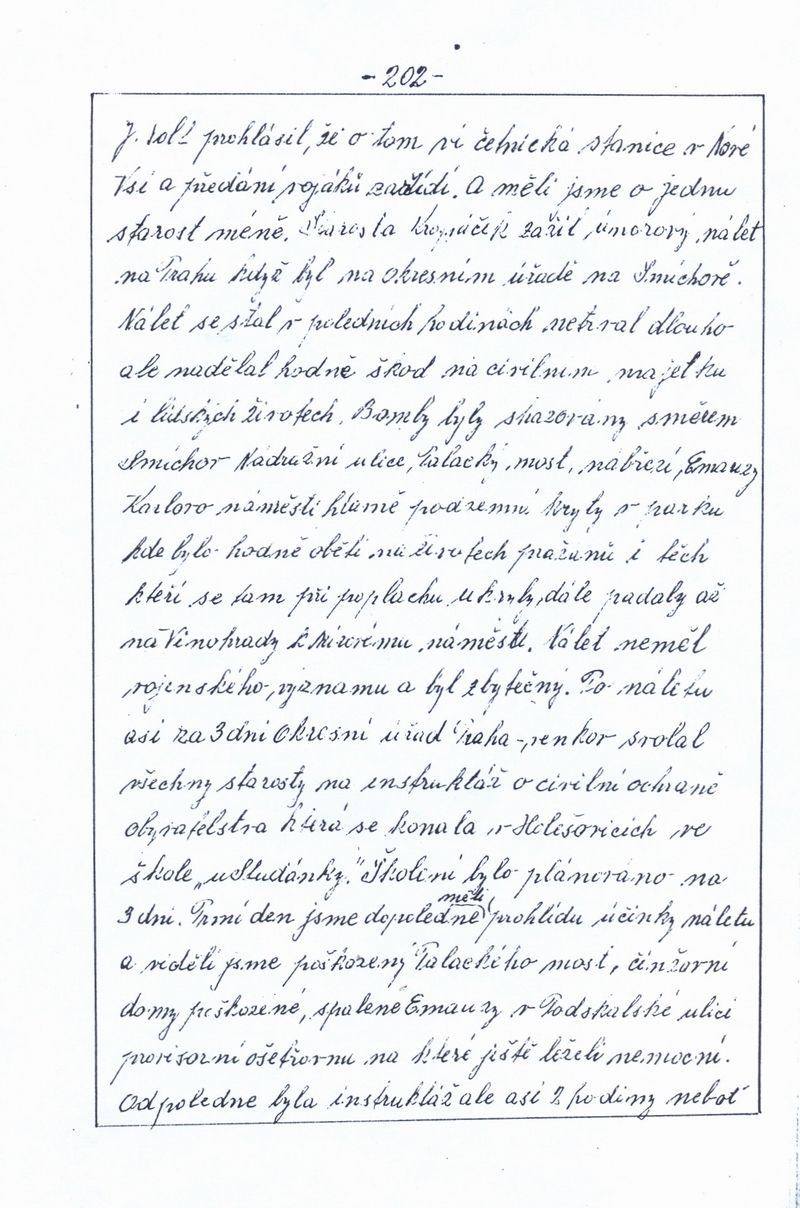 - 202 -
J. Volf prohlásil, že o tom ví četnická stanice v Nové
Vsi a předání vojáků zařídí. A měli jsme o jednu
starost méně. Starosta Kropáček zažil únorový nálet
na Prahu když byl na okresním úřadě na Smíchově.
Nálet se stal v poledních hodinách netrval dlouho
ale nadělal hodně škod na civilním majetku
i lidských životech. Bomby byly shazovány směrem
Smíchov Nádražní ulice, Palacký most, nábřezí, Emauzy
Karlovo náměstí hlavně podzemní kryty v parku
kde bylo hodně obětí na životech pražanů i těch
kteří se tam při poplachu ukryly, dále padaly až
na Vinohrady k Mírovému náměstí. Nálet neměl
vojenského významu a byl zbytečný. Po náletu
asi za 3 dni Okresní úřad Praha-venkov svolal
všechny starosty na instruktáž o civilní ochraně
obyvatelstva která se konala v Holešovicích ve
škole „u Studánky." Školení bylo plánováno na
3 dni. První den jsme dopoledne měli prohlídu účinky náletu
a viděli jsme poškozený Palackého most, činžovní
domy poškozené, spálené Emauzy v Podskalské ulici
provisorní ošetřovnu na které ještě leželi nemocní.
Odpoledne byla instruktáž ale asi 2 hodiny neboť